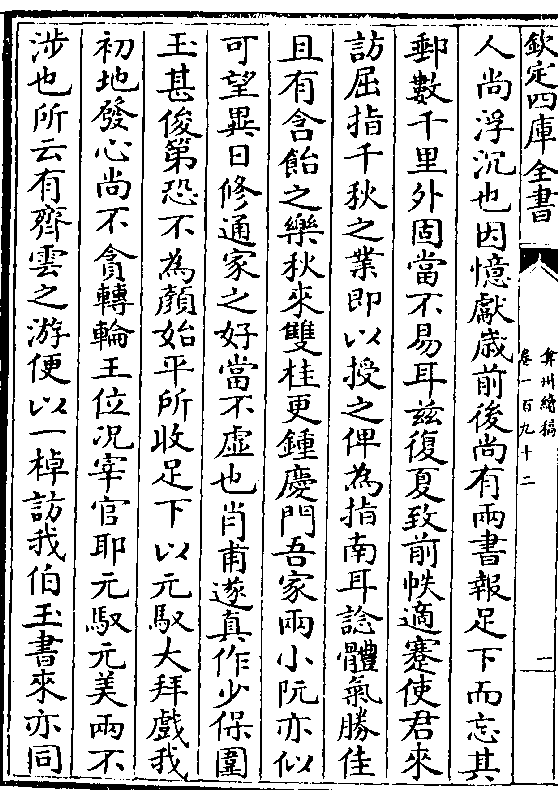 欽定四庫全書
弇州續稿
卷一百九十二
二
人尚浮沉也因憶獻歲前後尚有兩書報足下而忘其
郵數千里外固當不易耳兹復夏致前帙適蹇使君來
訪屈指千秋之業即以授之俾為指南耳諗體氣勝佳
且有含飴之樂秋來雙桂更鍾慶門吾家兩小阮亦似
可望異日修通家之好當不虚也肖甫遂真作少保圍
玉甚俊第恐不為顔始平所收足下以元馭大拜戲我
初地發心尚不貪轉輪王位况宰官耶元馭元美兩不
涉也所云有齊雲之游便以一棹訪我伯玉書來亦同